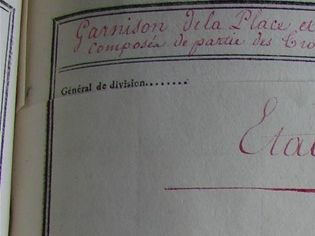 Garnison de la Place et
composée de partie des Tro
Général de division........
Eta